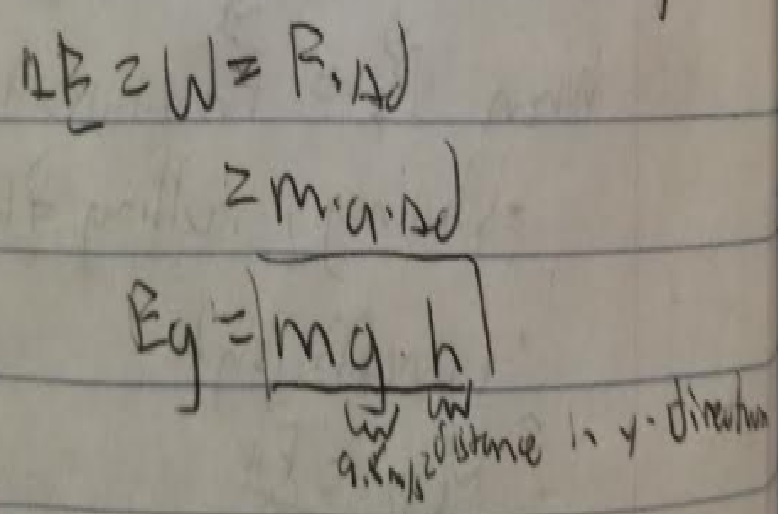 ΔE = W = F · Δd
= m · a · Δd
Eg = mg · h
9.8m/s² distance in y-direction